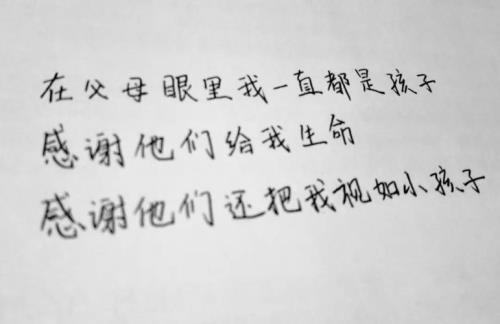 在父母眼里我一直都是孩子
感谢他们给我生命
感谢他们还把我视如小孩子